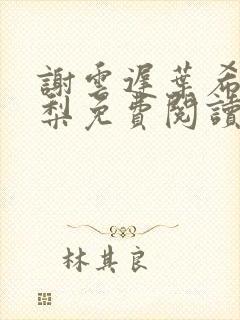 謝雲遲葉希
梨免費閱讀
林其良